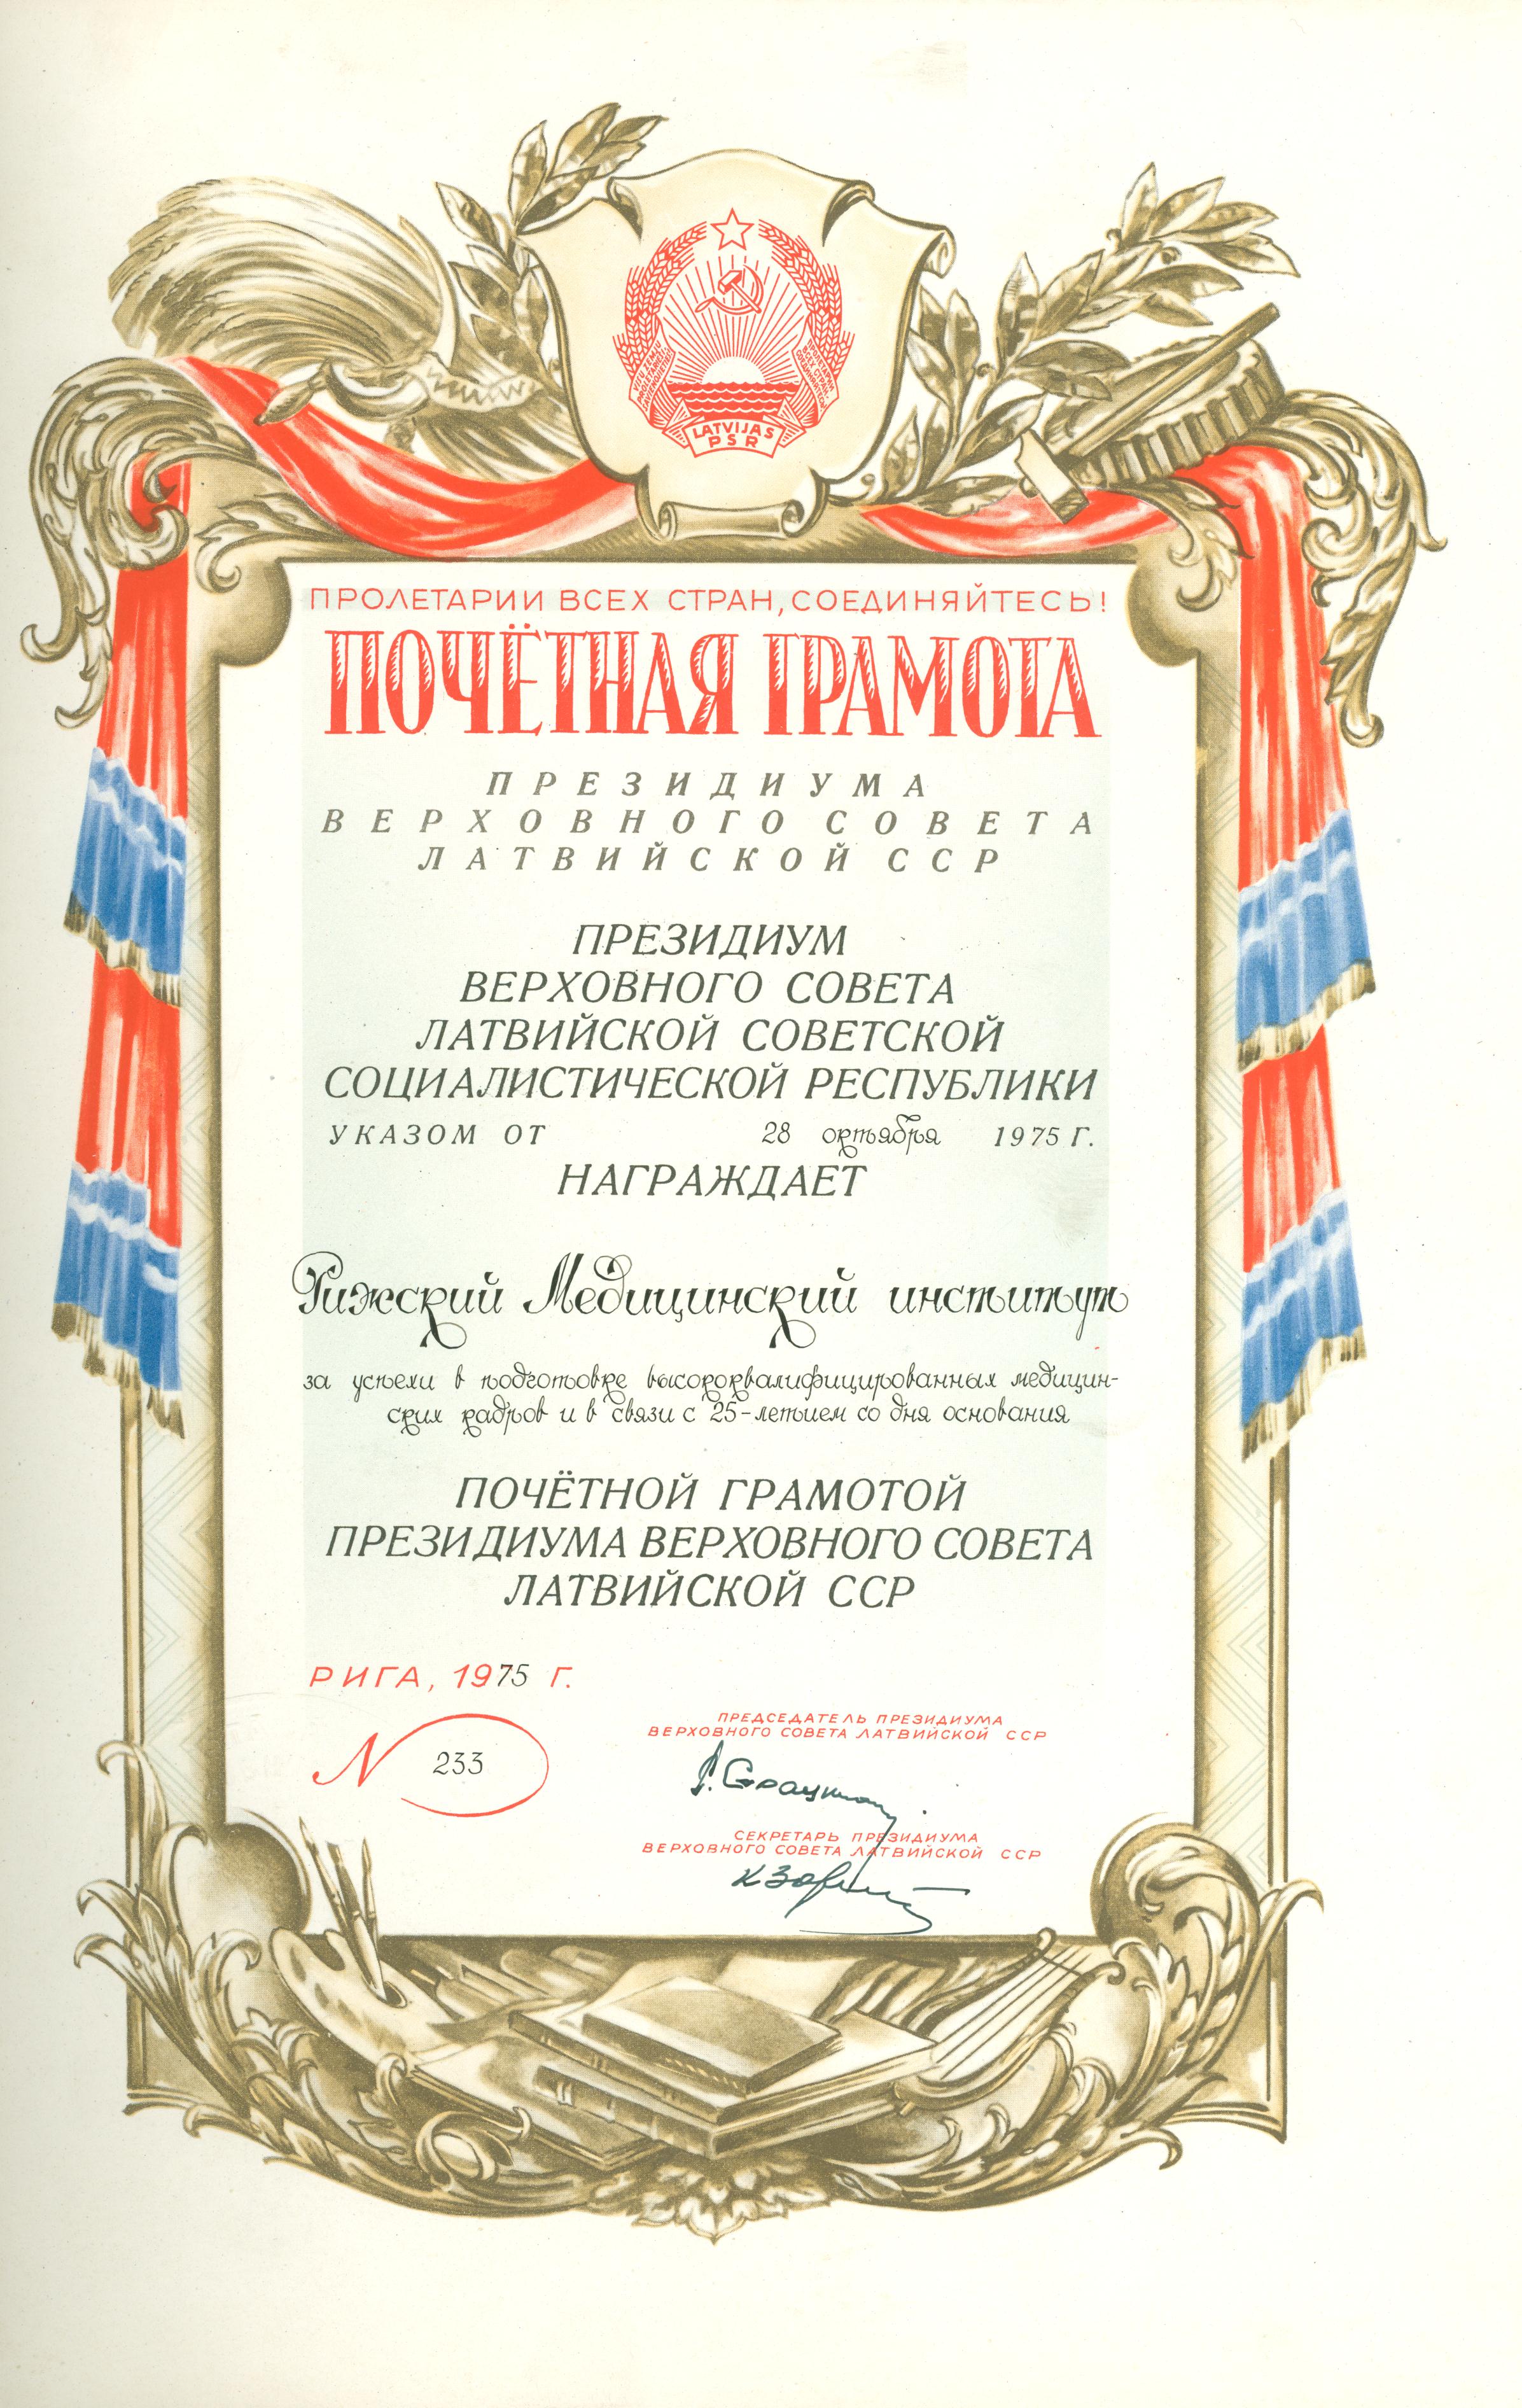 VISU ZEMJU
PROLETARIEŠI,
SAVIENOJIETIES!
ПРОЛЕТАРИИ
ВСЕХ СТРАН,
СОЕДИНЯЙТЕСЬ!
LATVIJAS
PSR
ПРОЛЕТАРИИ ВСЕХ СТРАН, СОЕДИНЯЙТЕСЬ!
ПОЧЁТНАЯ ГРАМОТА
ПРЕЗИДИУМА
ВЕРХОВНОГО СОВЕТА
ЛАТВИЙСКОЙ ССР
ПРЕЗИДИУМ
ВЕРХОВНОГО СОВЕТА
ЛАТВИЙСКОЙ СОВЕТСКОЙ
СОЦИАЛИСТИЧЕСКОЙ РЕСПУБЛИКИ
УКАЗОМ ОТ 28 октября 1975 Г.
НАГРАЖДАЕТ
Рижский Медицинский институт
за успехи в подготовке высококвалифицированных медицин-
ских кадров и в связи с 25-летием со дня основания
ПОЧЁТНОЙ ГРАМОТОЙ
ПРЕЗИДИУМА ВЕРХОВНОГО СОВЕТА
ЛАТВИЙСКОЙ ССР
РИГА, 1975 Г.
N 233
ПРЕДСЕДАТЕЛЬ ПРЕЗИДИУМА
ВЕРХОВНОГО СОВЕТА ЛАТВИЙСКОЙ ССР
СЕКРЕТАРЬ ПРЕЗИДИУМА
ВЕРХОВНОГО СОВЕТА ЛАТВИЙСКОЙ ССР